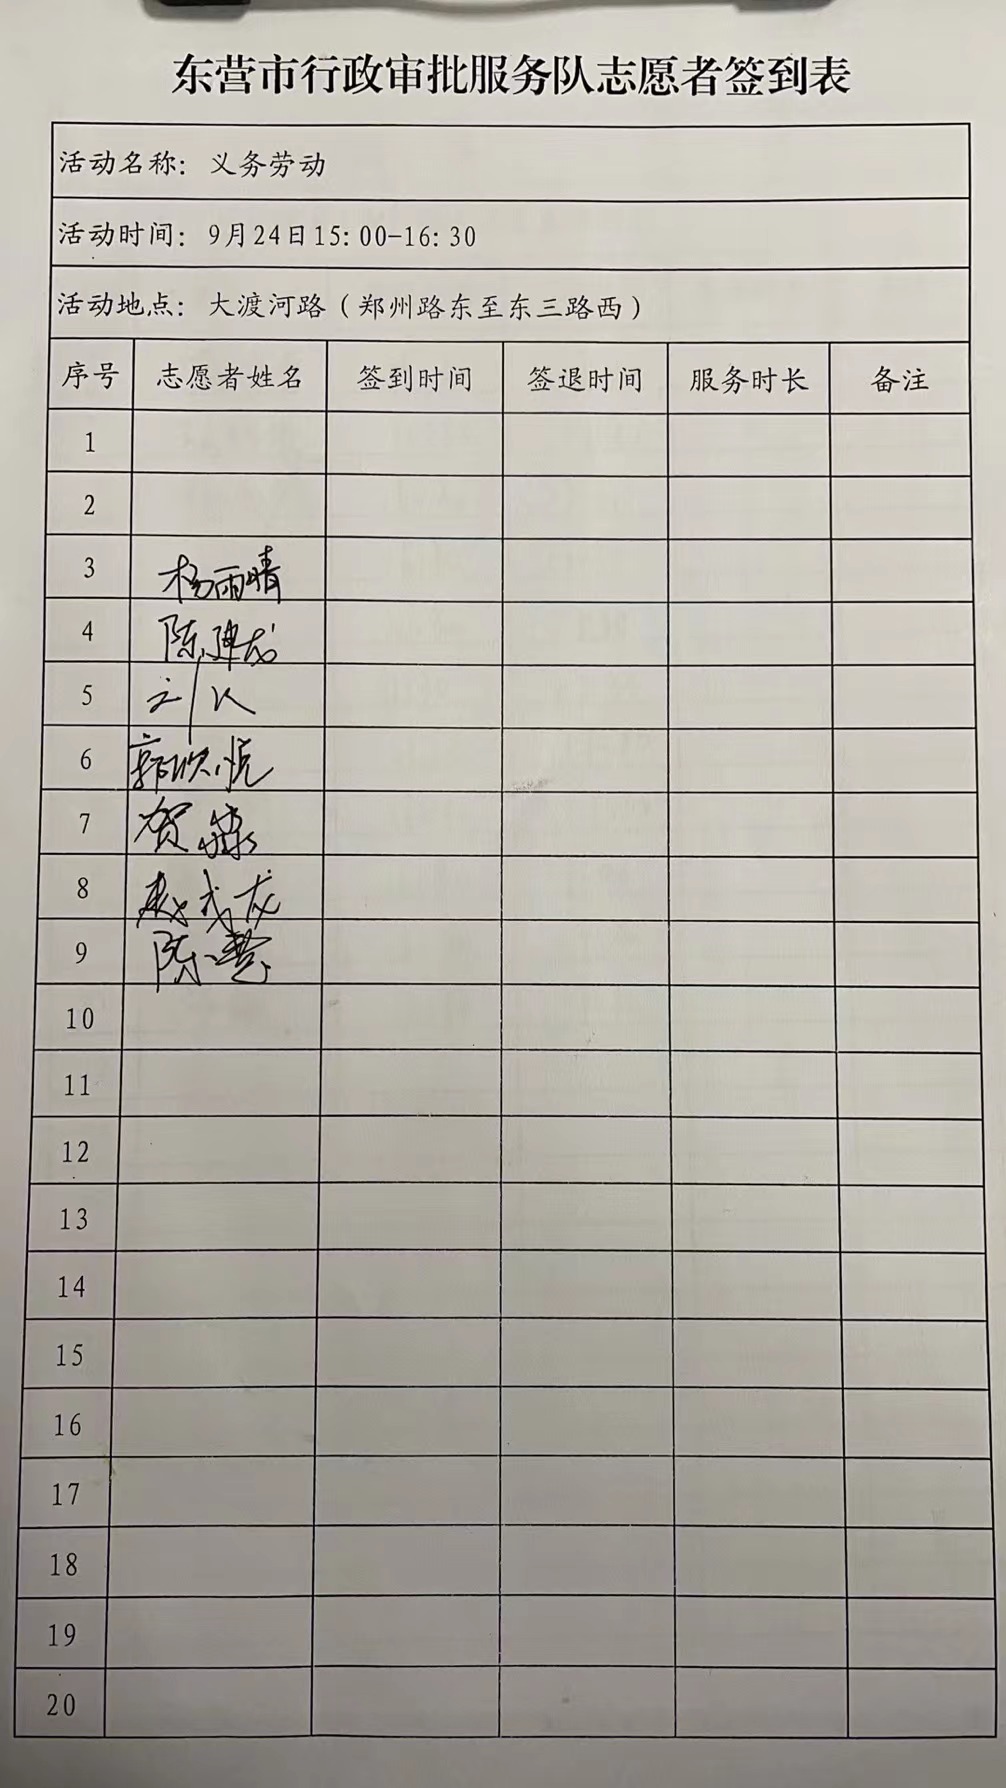 东营市行政审批服务队志愿者签到表
活动名称: 义务劳动
活动时间: 9月24日15:00-16:30
活动地点: 大渡河路(郑州路东至东三路西)
序号 志愿者姓名 签到时间 签退时间 服务时长 备注
1
2
3 杨雨晴
4 陈建龙
5 刘
6 郭欣悦
7 贺
8 赵成龙
9 陈慧
10
11
12
13
14
15
16
17
18
19
20